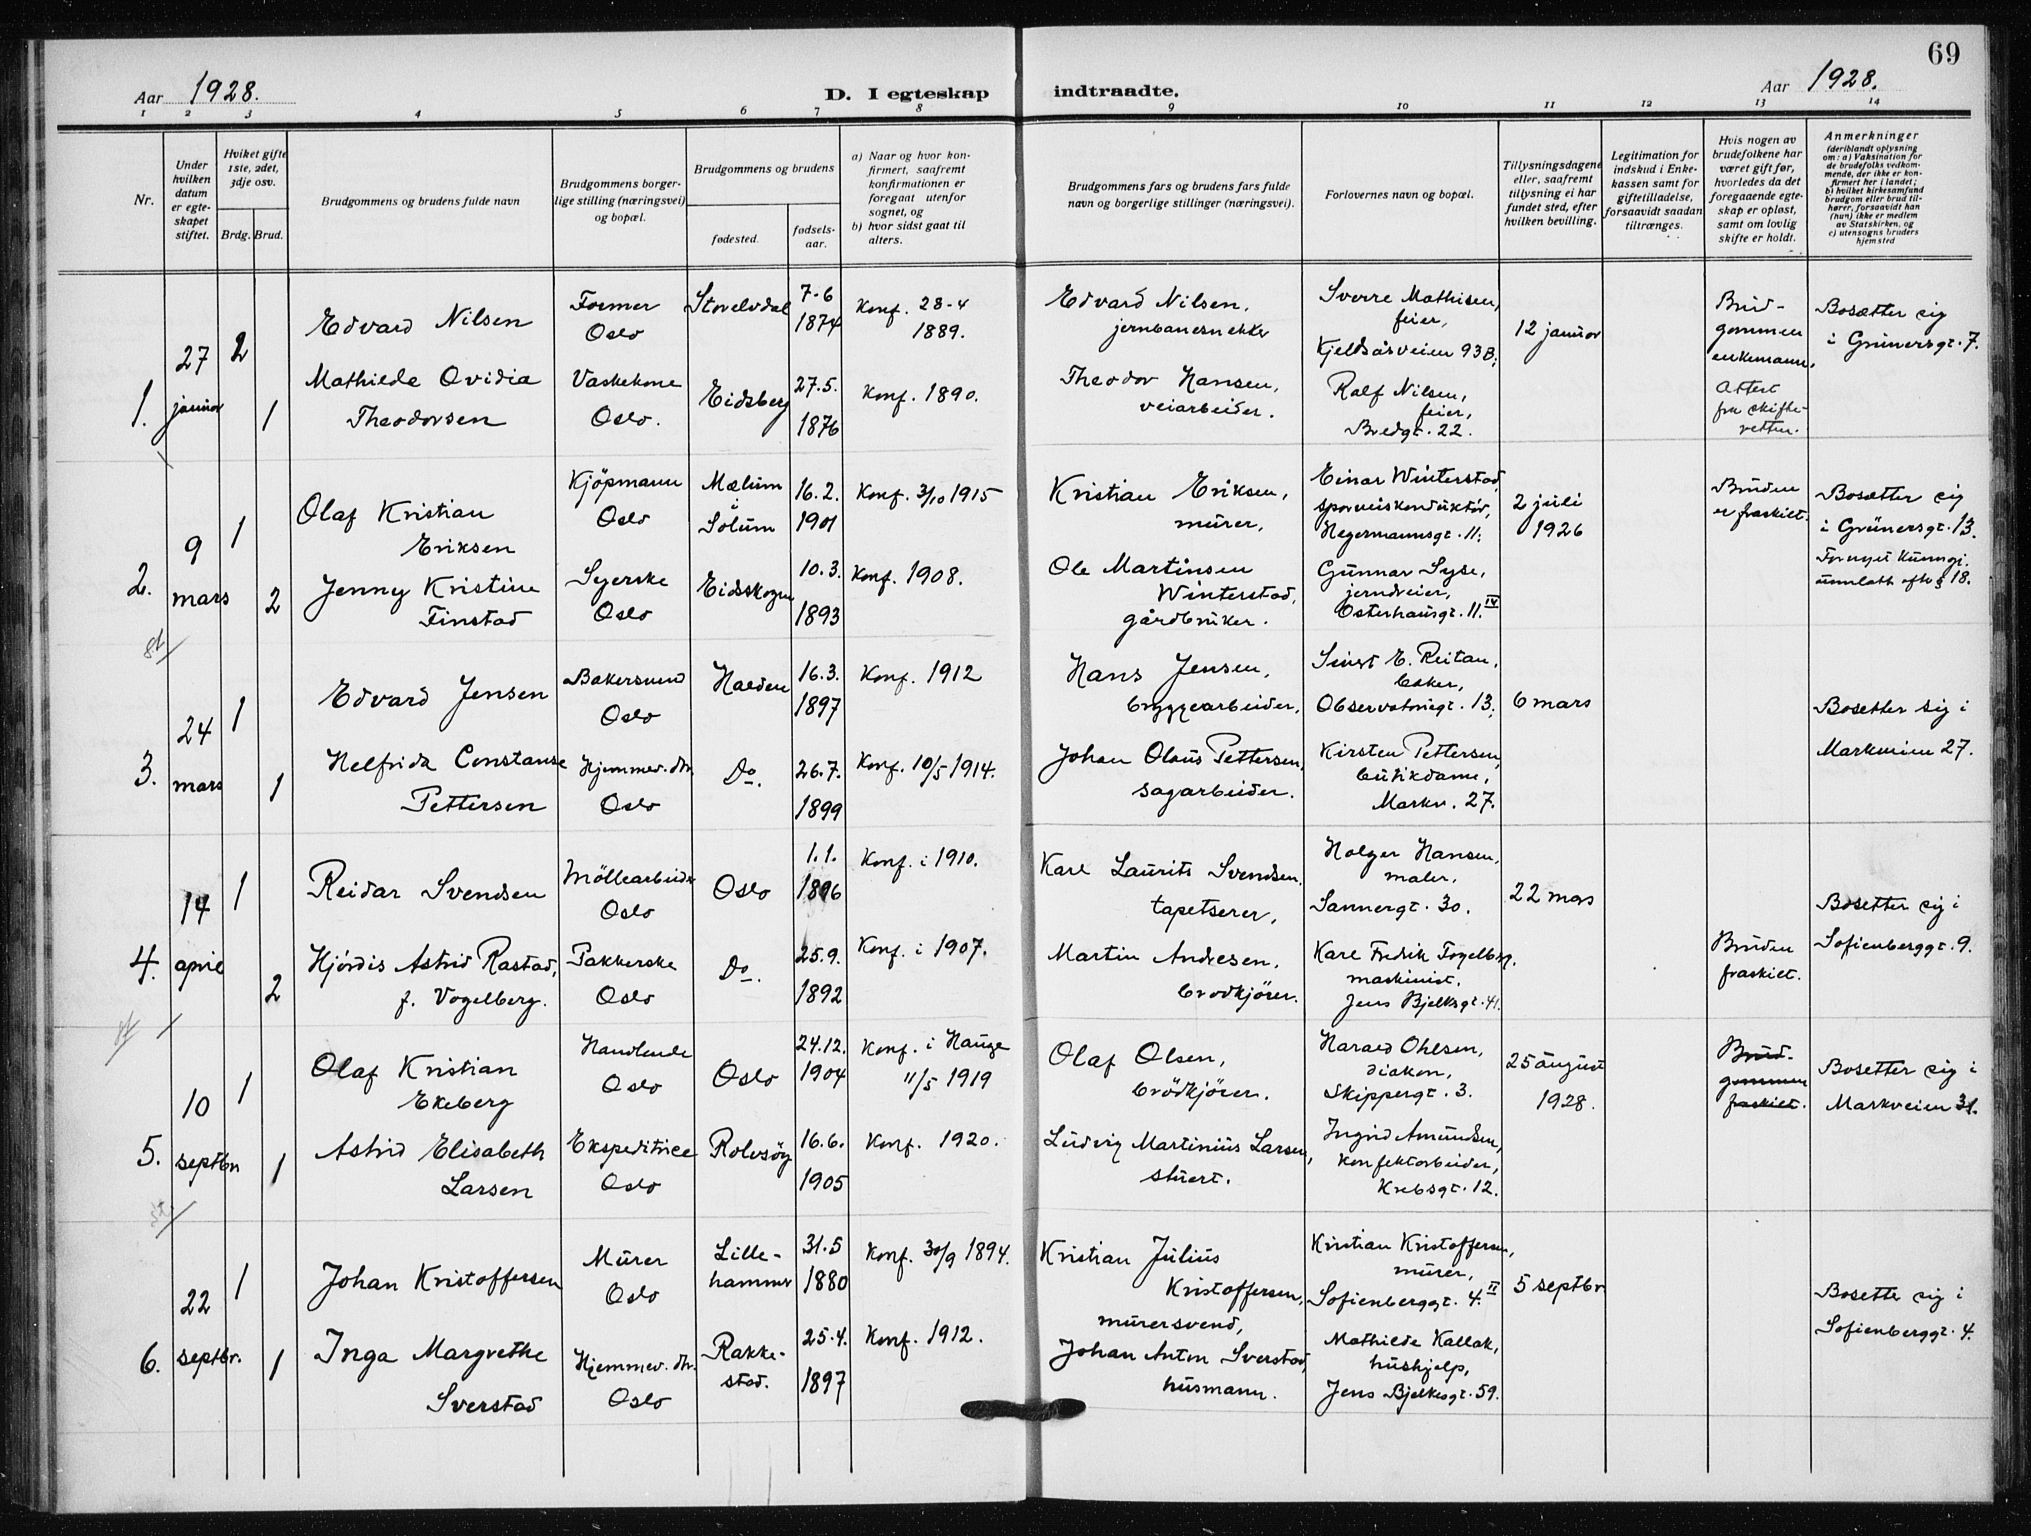 69
Aar 1928.
D. I egteskap indtraadte.
Aar 1928.
1 2 3 4 5 6 7 8 9 10 11 12 13 14
Nr.
Under
hvilken
datum
er egte-
skapet
stiftet.
Hviket gifte
1ste, 2det,
3dje osv.
Brdg. Brud.
Brudgommens og brudens fulde navn
Brudgommens borger-
lige stilling (næringsvei)
og bopæl.
Brudgommens og brudens
fødested.
fødsels-
aar.
a) Naar og hvor kon-
firmert, saafremt
konfirmationen er
foregaat utenfor
sognet, og
b) hvor sidst gaat til
alters.
Brudgommens fars og brudens fars fulde
navn og borgerlige stillinger (næringsvei).
Forlovernes navn og bopæl.
Tillysningsdagene
eller, saafremt
tillysning ei har
fundet sted, efter
hvilken bevilling.
Legitimation for
indskud i Enke-
kassen samt for
giftetilladelse,
forsaavidt saadan
tiltrænges.
Hvis nogen av
brudefolkene har
været gift før,
hvorledes da det
foregaaende egte-
skap er opløst,
samt om lovlig
skifte er holdt.
Anmerkninger
(deriblandt oplysning
om: a) Vaksination for
de brudefolks vedkom-
mende, der ikke er kon-
firmert her i landet;
b) hvilket kirkesamfund
brudgom eller brud til-
hører, forsaavidt han
(hun) ikke er medlem
av Statskirken, og
c) utensogns bruders
hjemsted
1.
27
januar
2
1
Edvard Nilsen
Former
Oslo
Storelvdal
7-6
1874
Konf. 28-4
1889.
Edvard Nilsen,
jernbanesnekker
Sverre Mathisen,
feier,
Kjelsåsveien 93B;
12 januar
Brud-
gommen
enkemann.
Attest
fra skifte-
retten.
Bosætter sig
i Grünersgt. 7.
Mathilde Ovidia
Theodorsen
Vaskekone
Oslo.
Eidsberg
27.5.
1876
Konf. 1890.
Theodor Hansen,
veiarbeider.
Ralf Nilsen,
feier,
Bredgt. 22.
2.
9
mars
1
2
Olaf Kristian
Eriksen
Kjöpmann
Oslo
Mælum
i
Solum
16.2.
1901
Konf. 3/10 1915
Kristian Eriksen,
murer,
Einar Winterstad,
sporveiskonduktör,
Hegermannsgt. 11;
2 juli
1926
Bruden
er fraskilt.
Bosætter sig
i Grünersgt. 13.
Fornyet kunngj.
unnlatt efter § 18.
Jenny Kristine
Finstad
Syerske
Oslo
Eidskogen
10.3.
1893
Konf. 1908.
Ole Martinsen
Winterstad,
gårdbruker.
Gunnar Syse,
jerndreier,
Osterhausgt. 11. IV
3.
24
mars
1
1
Edvard Jensen
Bakersvend
Oslo
Halden
16.3.
1897
Konf. 1912
Hans Jensen,
bryggearbeider,
E. Reitan,
baker,
Observatoriegt. 13;
6 mars
Bosetter sig i
Markveien 27.
Helfrida Constanse
Pettersen
Hjemmev. dtr.
Oslo
Do.
26.7.
1899
Konf. 10/5 1914.
Johan Olaus Pettersen,
sagarbeider.
Kirsten Pettersen,
butikdame,
Markv. 27.
4.
14
april
1
2
Reidar Svendsen
Möllearbeider
Oslo
Oslo
1.1.
1896
Konf. i 1910.
Karl Laurits Svendsen,
tapetserer,
Holger Hansen,
maler,
Sannergt. 30.
22 mars
Bosetter sig i
Sofienberggt. 9.
Hjördis Astrid Rastad,
f. Vogelberg.
Pakkerske
Oslo
Do.
25.9.
1892
Konf. i 1907.
Martin Andresen,
brödkjörer.
Karl Fredrik Fogelberg,
maskinist.
Jens Bjelksgt. 41.
Bruden
fraskilt.
5.
10
septbr
1
1
Olaf Kristian
Ekeberg
Handlende
Oslo
Oslo
24.12.
1904
Konf. i Hauge
11/5 1919
Olaf Olsen,
brödkjörer.
Harald Ohlsen,
diakon,
Skippergt. 3.
25 august
1928.
Brud-
gommen
fraskilt.
Bosetter sig i
Markveien 31.
Astrid Elisabeth
Larsen
Ekspeditrice
Oslo
Rolvsöy
16.6.
1905
Konf. 1920.
Ludvig Martinius Larsen,
stuert.
Ingrid Amundsen,
konfektarbeider,
Krebsgt. 12.
6.
22
septbr.
1
1
Johan Kristoffersen
Murer
Oslo
Lille-
hammer
31.5
1880
Konf. 30/9 1894.
Kristian Julius
Kristoffersen,
murersvend,
Kristian Kristoffersen,
murer,
Sofienberggt. 4. II
5 septbr
Bosetter sig i
Sofienberggt. 4.
Inga Margrethe
Sverstad
Hjemmev. dtr.
Oslo
Rakke-
stad.
25.4.
1897
Konf. 1912.
Johan Anton Sverstad,
husmann.
Mathilde Kallak,
hushjelp,
Jens Bjelkesgt. 59.